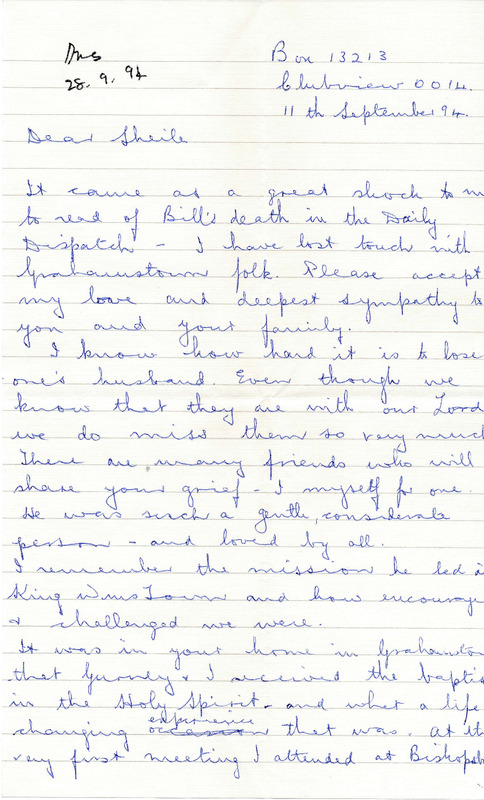 Ans
28. 9. 94
Box 13213
Clubview 0014.
11 th September 94.
Dear Sheile
It came as a great shock to m
to read of Bill's death in the Daily
Dispatch - I have lost touch with
Grahamstown folk. Please accept
my love and deepest sympathy to
you and your family.
I know how hard it is to lose
one's husband. Even though we
know that they are with our Lord
we do miss them so very much
There are many friends who will
share your grief - I myself for one.
He was such a gentle, considerate
person - and loved by all.
I remember the mission he led i
King Wms Town and how encourage
& challenged we were.
It was in your home in Grahamstow
that Gurney & I received the baptis
in the Holy Spirit - and what a life
changing experience that was. At it
very first meeting I attended at Bishopsb